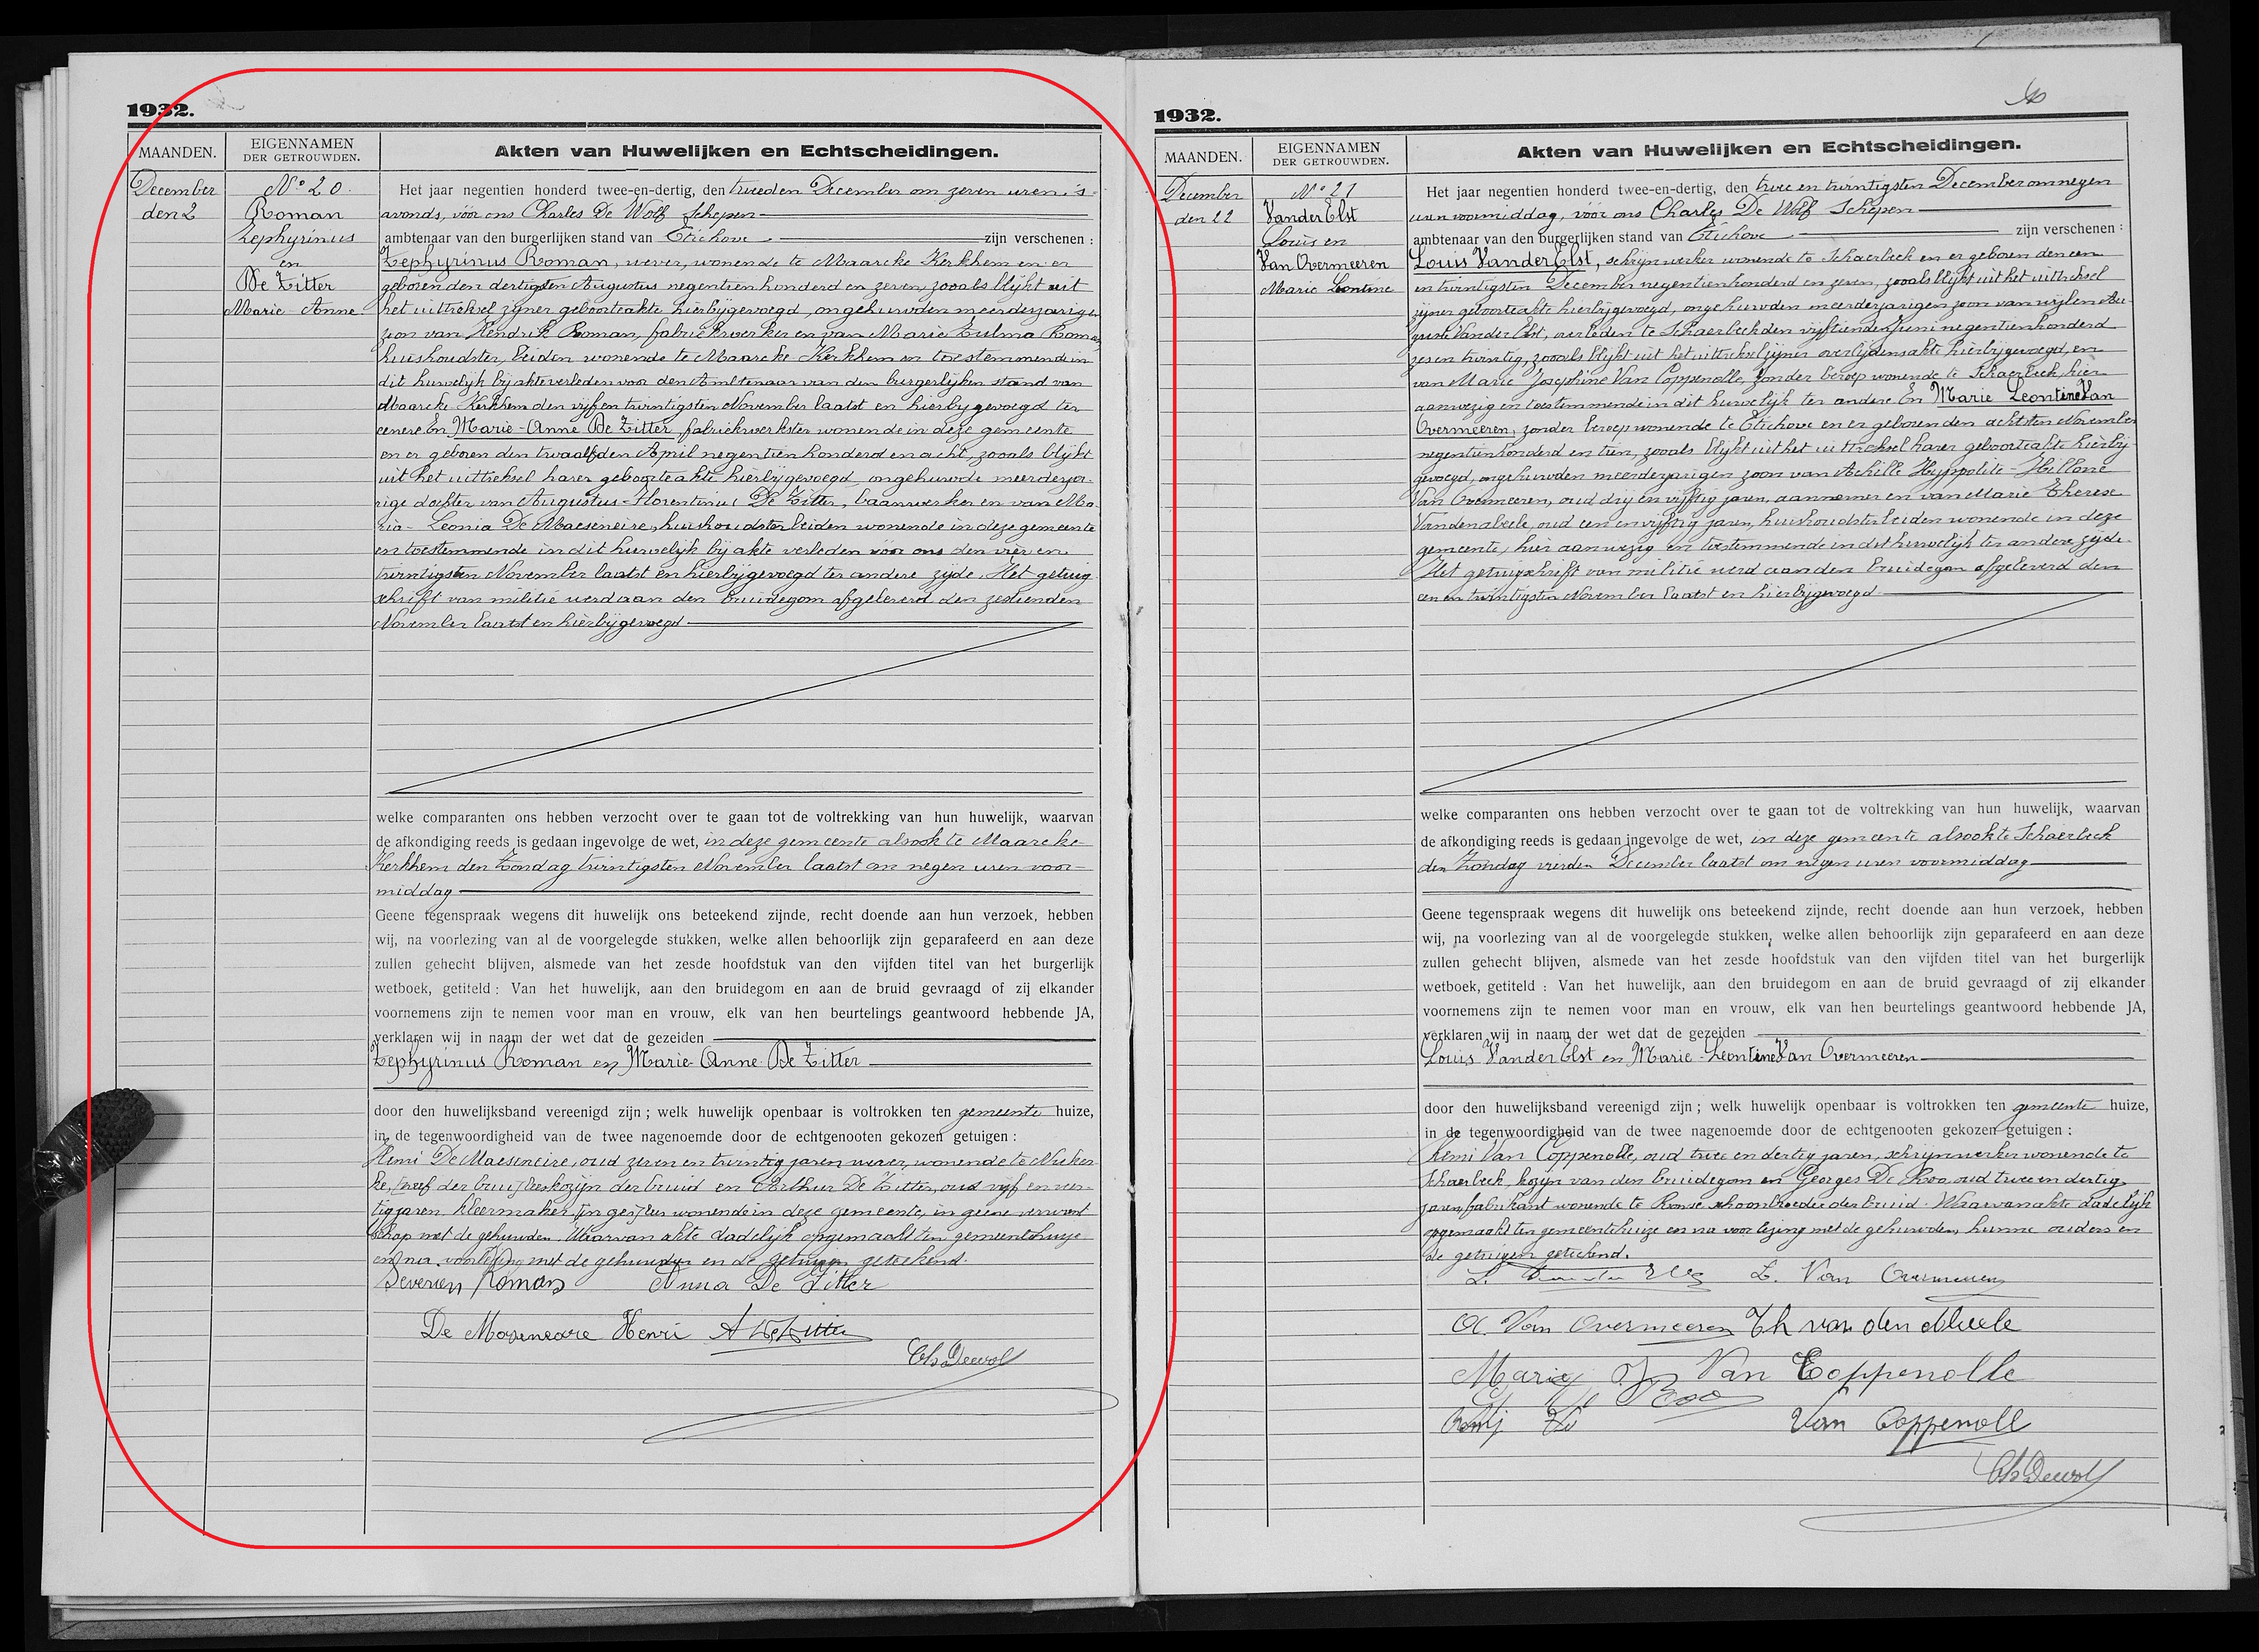 1932.
MAANDEN.
EIGENNAMEN
DER GETROUWDEN.
Akten van Huwelijken en Echtscheidingen.
December
den 2
No 20.
Roman
Zephyrinus
en
De Zitter
Marie-Anne.
Het jaar negentien honderd twee-en-dertig, den tweeden December om zeven uren 's
avonds, vóór ons Charles De Wolf Schepen
ambtenaar van den burgerlijken stand van Etichove zijn verschenen :
Zephyrinus Roman, wever, wonende te Maarcke Kerkhem en er
geboren den dertigsten Augustus negentien honderd en zeven, zooals blijkt uit
het uittreksel zijner geboorteakte hierbijgevoegd, ongehuwden meerderjarigen
zoon van Hendrik Roman, fabriekwerker en van Marie Zulma Roman
huishoudster, beiden wonende te Maarcke Kerkhem en toestemmende in
dit huwelijk bij akte verleden voor den Ambtenaar van den burgerlijken stand van
Maarcke-Kerkhem den vijf en twintigsten November laatst en hierbij gevoegd ter
eenere En Marie-Anne De Zitter, fabriekwerkster wonende in deze gemeente
en er geboren den twaalfden April negentien honderd en acht, zooals blijkt
uit het uittreksel harer geboorteakte hierbijgevoegd, ongehuwde meerderja-
rige dochter van Augustus-Florentinus De Zitter, baanwerker en van Ma-
ria-Leonia De Maeseneire, huishoudster beiden wonende in deze gemeente
en toestemmende in dit huwelijk bij akte verleden vóór ons den vier en
twintigsten November laatst en hierbijgevoegd ter andere zijde. Het getuig
schrift van militie werd aan den bruidegom afgeleverd den zestienden
November laatst en hierbijgevoegd
welke comparanten ons hebben verzocht over te gaan tot de voltrekking van hun huwelijk, waarvan
de afkondiging reeds is gedaan ingevolge de wet, in deze gemeente alsook te Maarcke
Kerkhem den Zondag twintigsten November laatst om negen uren voor-
middag
Geene tegenspraak wegens dit huwelijk ons beteekend zijnde, recht doende aan hun verzoek, hebben
wij, na voorlezing van al de voorgelegde stukken, welke allen behoorlijk zijn geparafeerd en aan deze
zullen gehecht blijven, alsmede van het zesde hoofdstuk van den vijfden titel van het burgerlijk
wetboek, getiteld : Van het huwelijk, aan den bruidegom en aan de bruid gevraagd of zij elkander
voornemens zijn te nemen voor man en vrouw, elk van hen beurtelings geantwoord hebbende JA,
verklaren wij in naam der wet dat de gezeiden
Zephyrinus Roman en Marie-Anne De Zitter
door den huwelijksband vereenigd zijn ; welk huwelijk openbaar is voltrokken ten gemeente huize,
in de tegenwoordigheid van de twee nagenoemde door de echtgenooten gekozen getuigen :
Henri De Maeseneire, oud zeven en twintig jaren wever, wonende te Nuker-
ke, kozijn der bruid en Arthur De Zitter, oud vijf en veer-
tig jaren kleermaker, wonende in deze gemeente, in geene verwant
schap met de gehuwden. Waarvan akte dadelijk opgemaakt ten gemeentehuize
en na voorlezing met de gehuwden en de getuigen geteekend.
Severien Roman Anna De Zitter
De Maseneire Henri A De Zitter
Ch Dewolf
1932.
MAANDEN.
EIGENNAMEN
DER GETROUWDEN.
Akten van Huwelijken en Echtscheidingen.
December
den 22
No 21
Vander Elst
Louis en
Van Overmeeren
Marie Leontine
Het jaar negentien honderd twee-en-dertig, den twee en twintigsten December om negen
uren voormiddag, vóór ons Charles De Wolf Schepen
ambtenaar van den burgerlijken stand van Etichove zijn verschenen :
Louis Vander Elst, schrijnwerker wonende te Schaerbeek en er geboren den een
en twintigsten December negentienhonderd en zeven, zooals blijkt uit het uittreksel
zijner geboorteakte hierbijgevoegd, ongehuwden meerderjarigen zoon van wijlen Au-
guste Vander Elst, overleden te Schaerbeek den vijftienden Juni negentienhonderd
zes en twintig, zooals blijkt uit het uittreksel zijner overlijdensakte hierbijgevoegd, en
van Marie Josephine Van Coppenolle, zonder beroep wonende te Schaerbeek, hier
aanwezig en toestemmende in dit huwelijk ter andere En Marie Leontine Van
Overmeeren, zonder beroep wonende te Etichove en er geboren den achtsten November
negentienhonderd en tien, zooals blijkt uit het uittreksel harer geboorteakte hierbij
gevoegd, ongehuwden meerderjarigen zoon van Achille Hyppolite-Hillone
Van Overmeeren, oud drij en vijftig jaren, aannemer en van Marie Therese
Vandenabeele, oud een en vijftig jaren, huishoudster beiden wonende in deze
gemeente, hier aanwezig en toestemmende in dit huwelijk ter andere zijde.
Het getuigschrift van militie werd aan den bruidegom afgeleverd den
een en twintigsten November laatst en hierbijgevoegd
welke comparanten ons hebben verzocht over te gaan tot de voltrekking van hun huwelijk, waarvan
de afkondiging reeds is gedaan ingevolge de wet, in deze gemeente alsook te Schaerbeek
den Zondag vierden December laatst om negen uren voormiddag
Geene tegenspraak wegens dit huwelijk ons beteekend zijnde, recht doende aan hun verzoek, hebben
wij, na voorlezing van al de voorgelegde stukken, welke allen behoorlijk zijn geparafeerd en aan deze
zullen gehecht blijven, alsmede van het zesde hoofdstuk van den vijfden titel van het burgerlijk
wetboek, getiteld : Van het huwelijk, aan den bruidegom en aan de bruid gevraagd of zij elkander
voornemens zijn te nemen voor man en vrouw, elk van hen beurtelings geantwoord hebbende JA,
verklaren wij in naam der wet dat de gezeiden
Louis Vander Elst en Marie-Leontine Van Overmeeren
door den huwelijksband vereenigd zijn ; welk huwelijk openbaar is voltrokken ten gemeente huize,
in de tegenwoordigheid van de twee nagenoemde door de echtgenooten gekozen getuigen :
Remi Van Coppenolle, oud twee en dertig jaren, schrijnwerker wonende te
Schaerbeek, kozijn van den bruidegom en Georges De Roo, oud twee en dertig
jaren, fabrikant wonende te Ronse, schoonbroeder der bruid. Waarvan akte dadelijk
opgemaakt ten gemeentehuize en na voorlezing met de gehuwden, hunne ouders en
de getuigen geteekend.
L. Vander Elst L. Van Overmeeren
A. Van Overmeeren Th van den Abeele
Marie J. Van Coppenolle
G. De Roo
Remij Van Coppenoll
Ch Dewolf